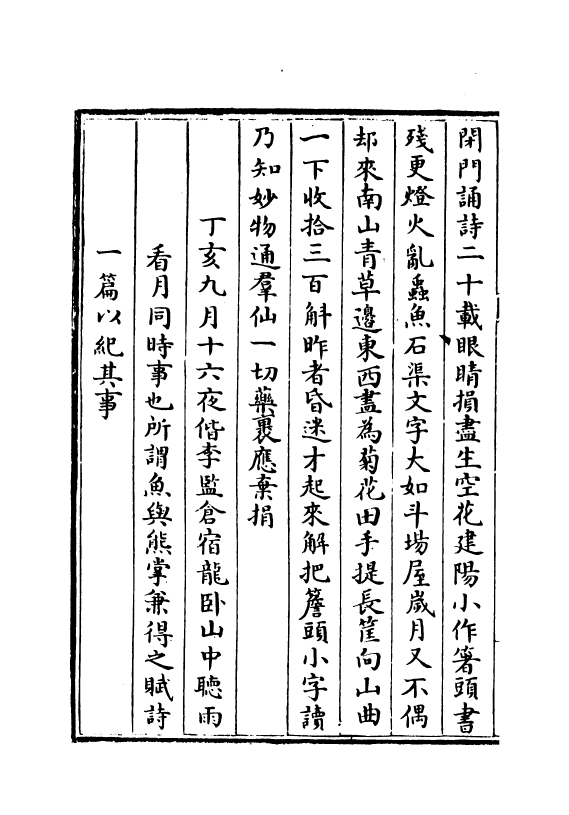 閉門誦詩二十載眼睛損盡生空花建陽小作箸頭書
殘更燈火亂蠧魚石渠文字大如斗場屋歳月又不偶
却來南山青草邊東西盡為菊花田手提長筐向山曲
一下收拾三百斛昨者昏迷才起來解把簷頭小字讀
乃知妙物通羣仙一切藥裹應棄捐
丁亥九月十六夜偕李監倉宿龍卧山中聽雨
看月同時事也所謂魚與熊掌兼得之賦詩
一篇以紀其事